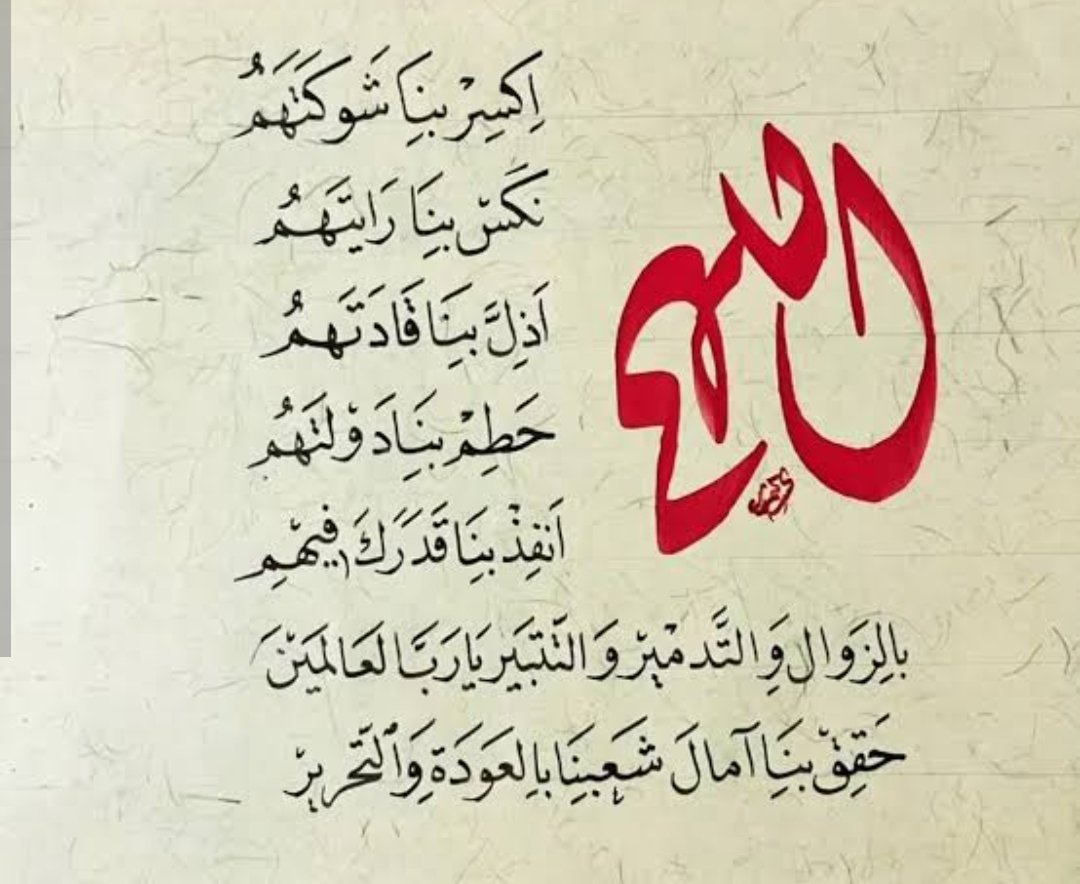 اللهم
اِكسِرْ بِنَا شَوكَتَهَمُ
نَكَسْ بِنِاَ رَايتَهَمُ
اَذِلَّ بِنِاَ قَادَتَهَمُ
حَطِمْ بِنَا دَوْلتَهُمُ
اَنفِذْ بِنَا قَدَرَكَ فيهْمِ
بالِزَوال وَالتَّدمْيِرْ وَ التَتبَيَر يَا رَبَّ العَالَميَنْ
حَقِقْ بِنَا آمالَ شَعبِنَا بالِعَودَةِ وَٱلتَحريِرْ